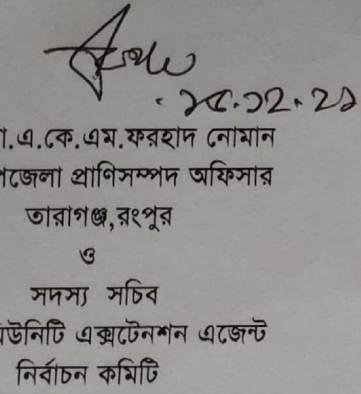 ২৫.১২.২১
.এ.কে.এম.ফরহাদ নোমান
জেলা প্রাণিসম্পদ অফিসার
তারাগঞ্জ,রংপুর
ও
সদস্য সচিব
উনিটি এক্সটেনশন এজেন্ট
নির্বাচন কমিটি